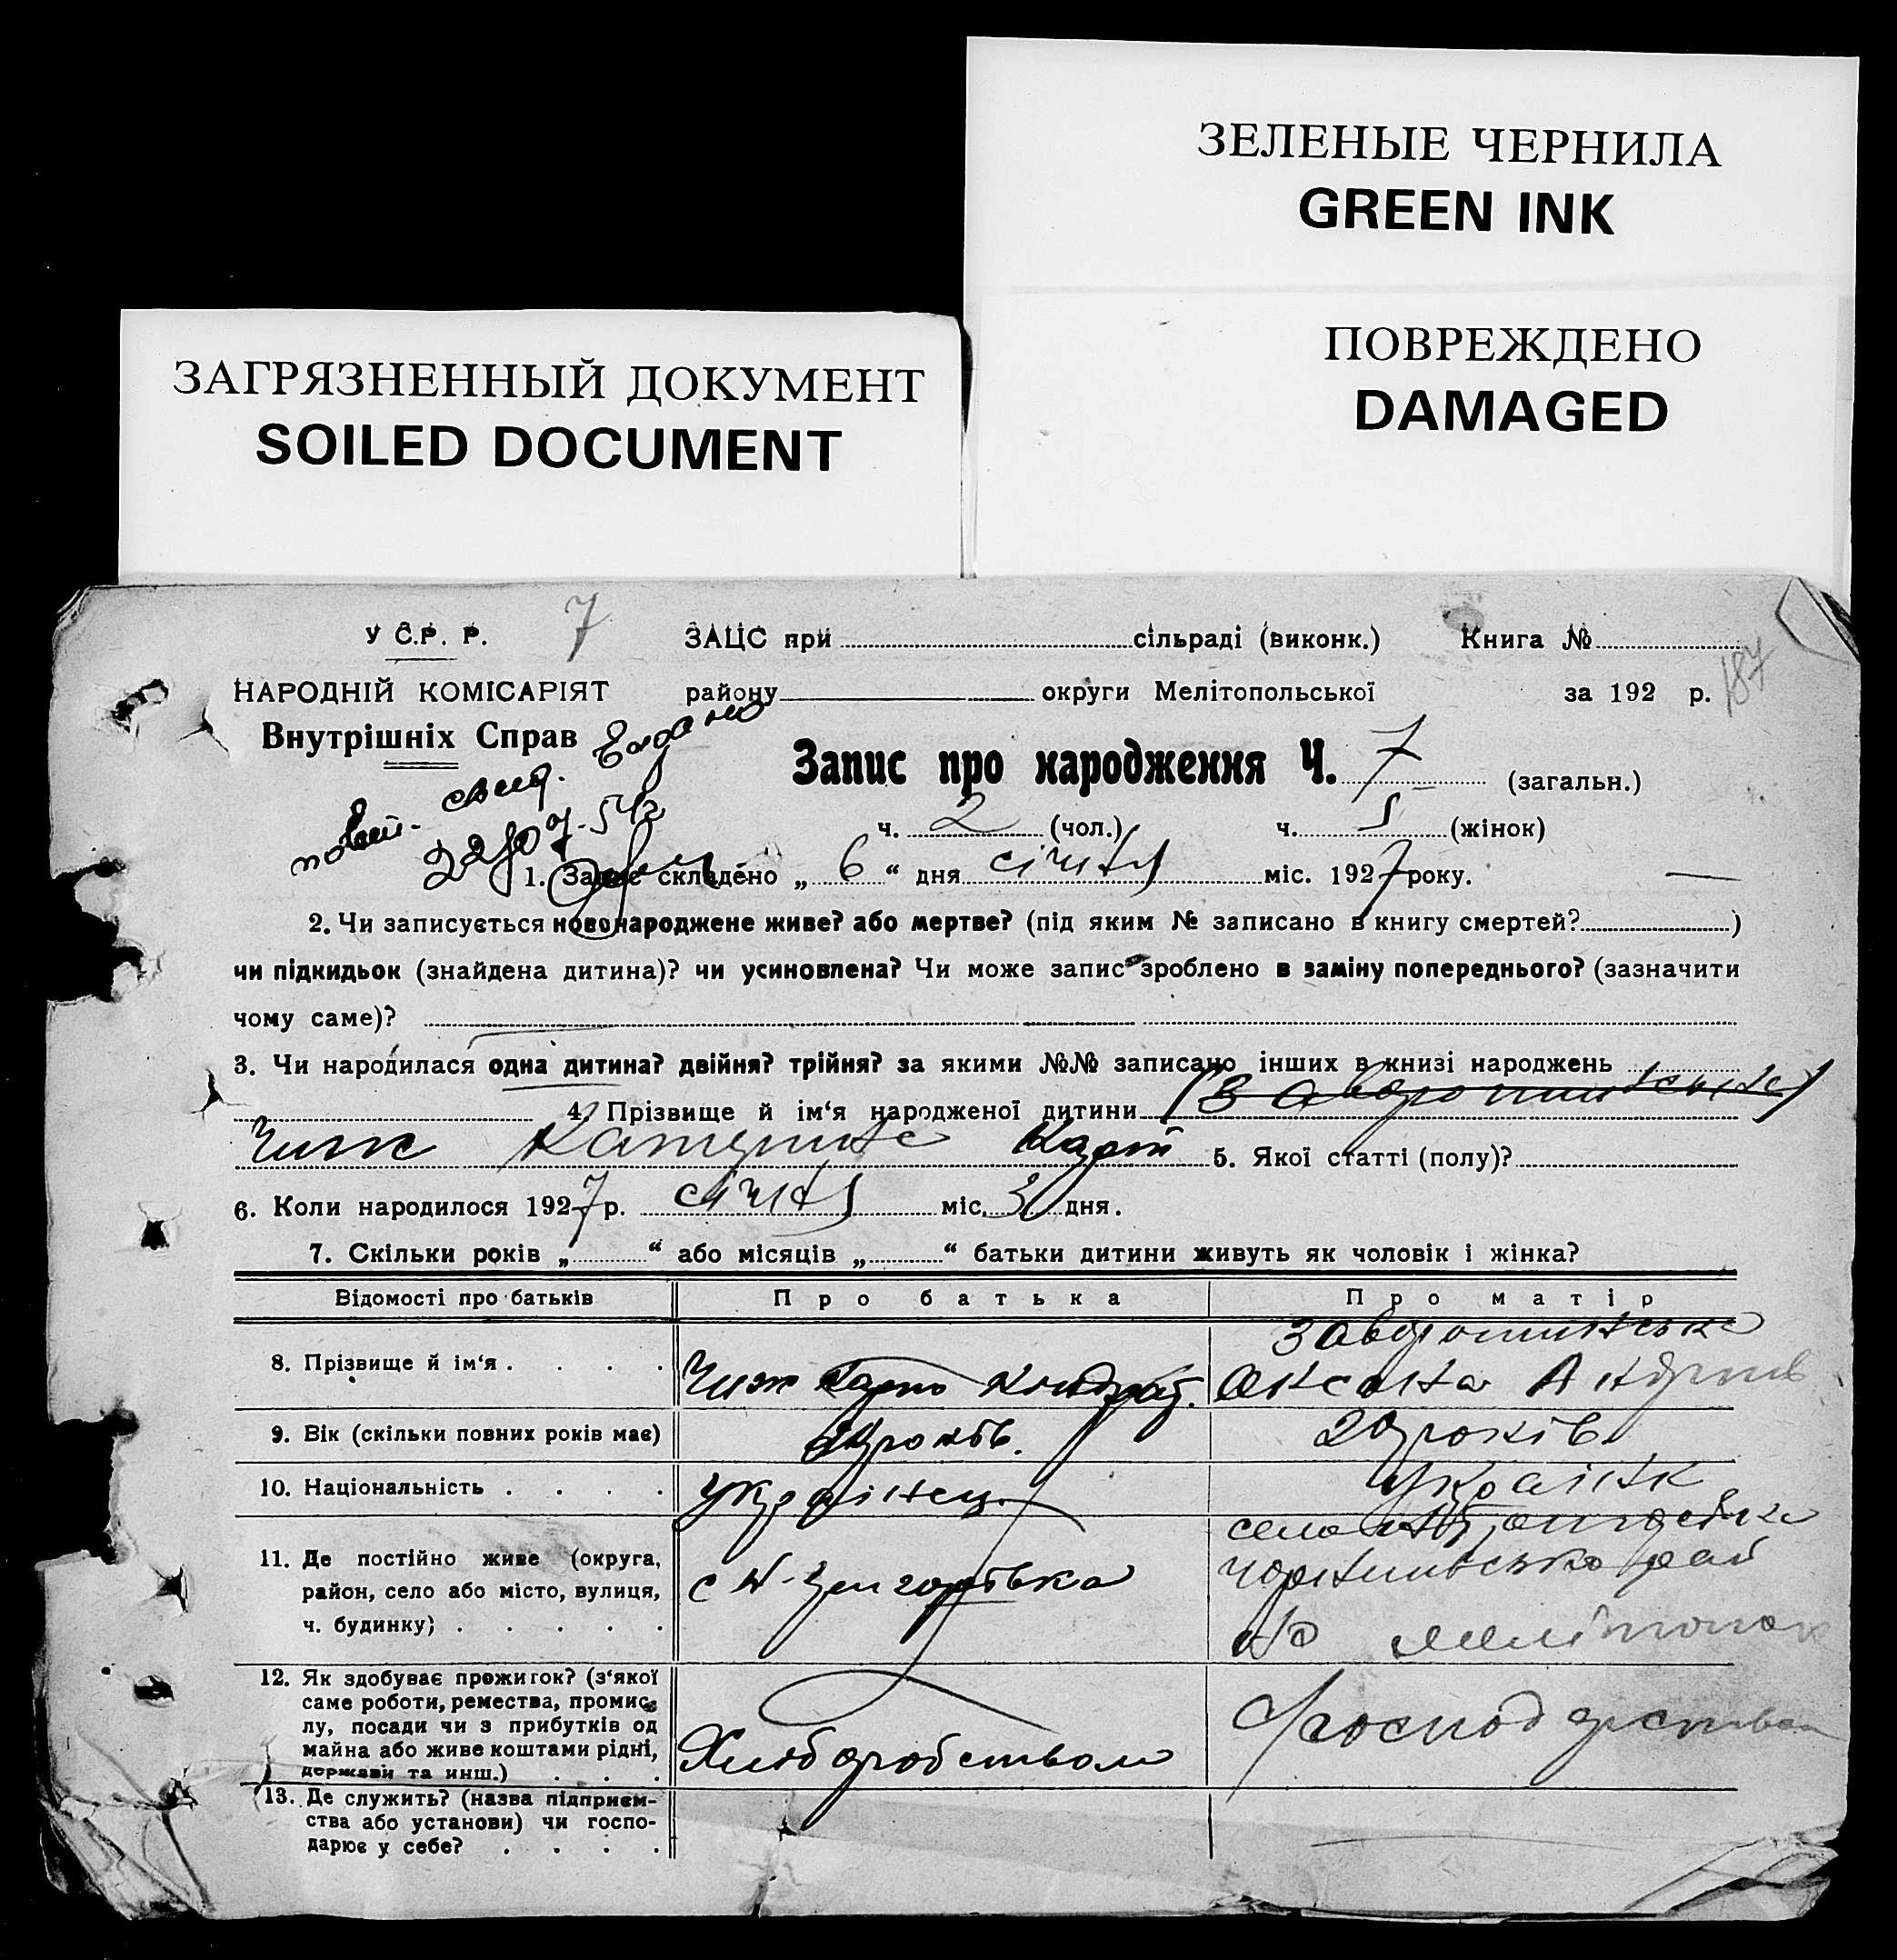 ЗЕЛЕНЫЕ ЧЕРНИЛА
GREEN INK
ПОВРЕЖДЕНО
DAMAGED
ЗАГРЯЗНЕННЫЙ ДОКУМЕНТ
SOILED DOCUMENT
У С.Р. Р. 7 ЗАЦС при сільраді (виконк.) Книга №
187
НАРОДНІЙ КОМІСАРІЯТ району округи Мелітопольської за 192 р.
Внутрішніх Справ
Запис про народження Ч. 7 (загальн.)
ч. 2 (чол.) ч. 5 (жінок)
1. Запис складено „ 6 “ дня січня міс. 1927 року.
2. Чи записується новонароджене живе? або мертве? (під яким № записано в книгу смертей? )
чи підкидьок (знайдена дитина)? чи усиновлена? Чи може запис зроблено в заміну попереднього? (зазначити
чому саме)?
3. Чи народилася одна дитина? двійня? трійня? за якими №№ записано інших в книзі народжень
4. Прізвище й ім‘я народженої дитини
Чиж Катерина Карп 5. Якої статті (полу)?
6. Коли народилося 1927 р. січня міс. 3 дня.
7. Скільки років „ “ або місяців „ “ батьки дитини живуть як чоловік і жінка?
Відомості про батьків Про батька Про матір
8. Прізвище й ім‘я . . . . Чиж Карпо Кіндрат. Оксана Андріїв
9. Вік (скільки повних років має) років. 20 років
10. Національність . . . . українец українк
11. Де постійно живе (округа,
район, село або місто, вулиця,
ч. будинку) . . . . .
с Н-Григорівка
село
рай
Мелітопок
12. Як здобуває прожиток? (з‘якої
саме роботи, ремества, промис-
лу, посади чи з прибутків од
майна або живе коштами рідні,
держави та инш.) . . .
Хліборобством
Господарством
13. Де служить? (назва підприєм-
ства або установи) чи госпо-
дарює у себе? . . . .